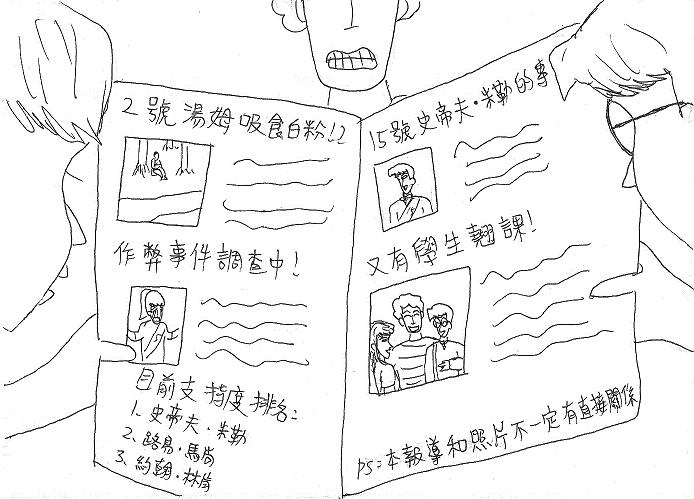 2號湯姆吸食白粉!?
作弊事件調查中!
目前支持度排名:
1. 史帝夫·米勒
2. 路易·馬尚
3. 約翰·林肯
15號史帝夫·米勒的事
又有學生翹課!
PS:本報導和照片不一定有直接關係